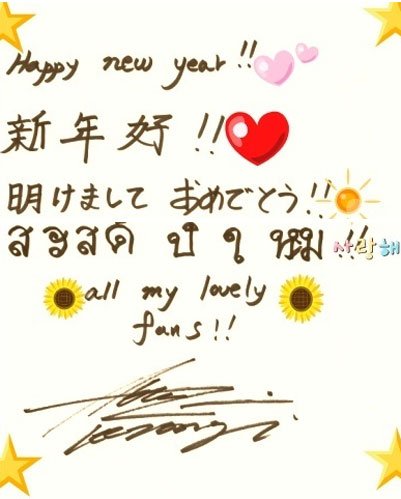 Happy new year!!
新年好!!
明けまして おめでとう!!
สวสด ปใหม!! 사랑해
all my lovely
fans!!